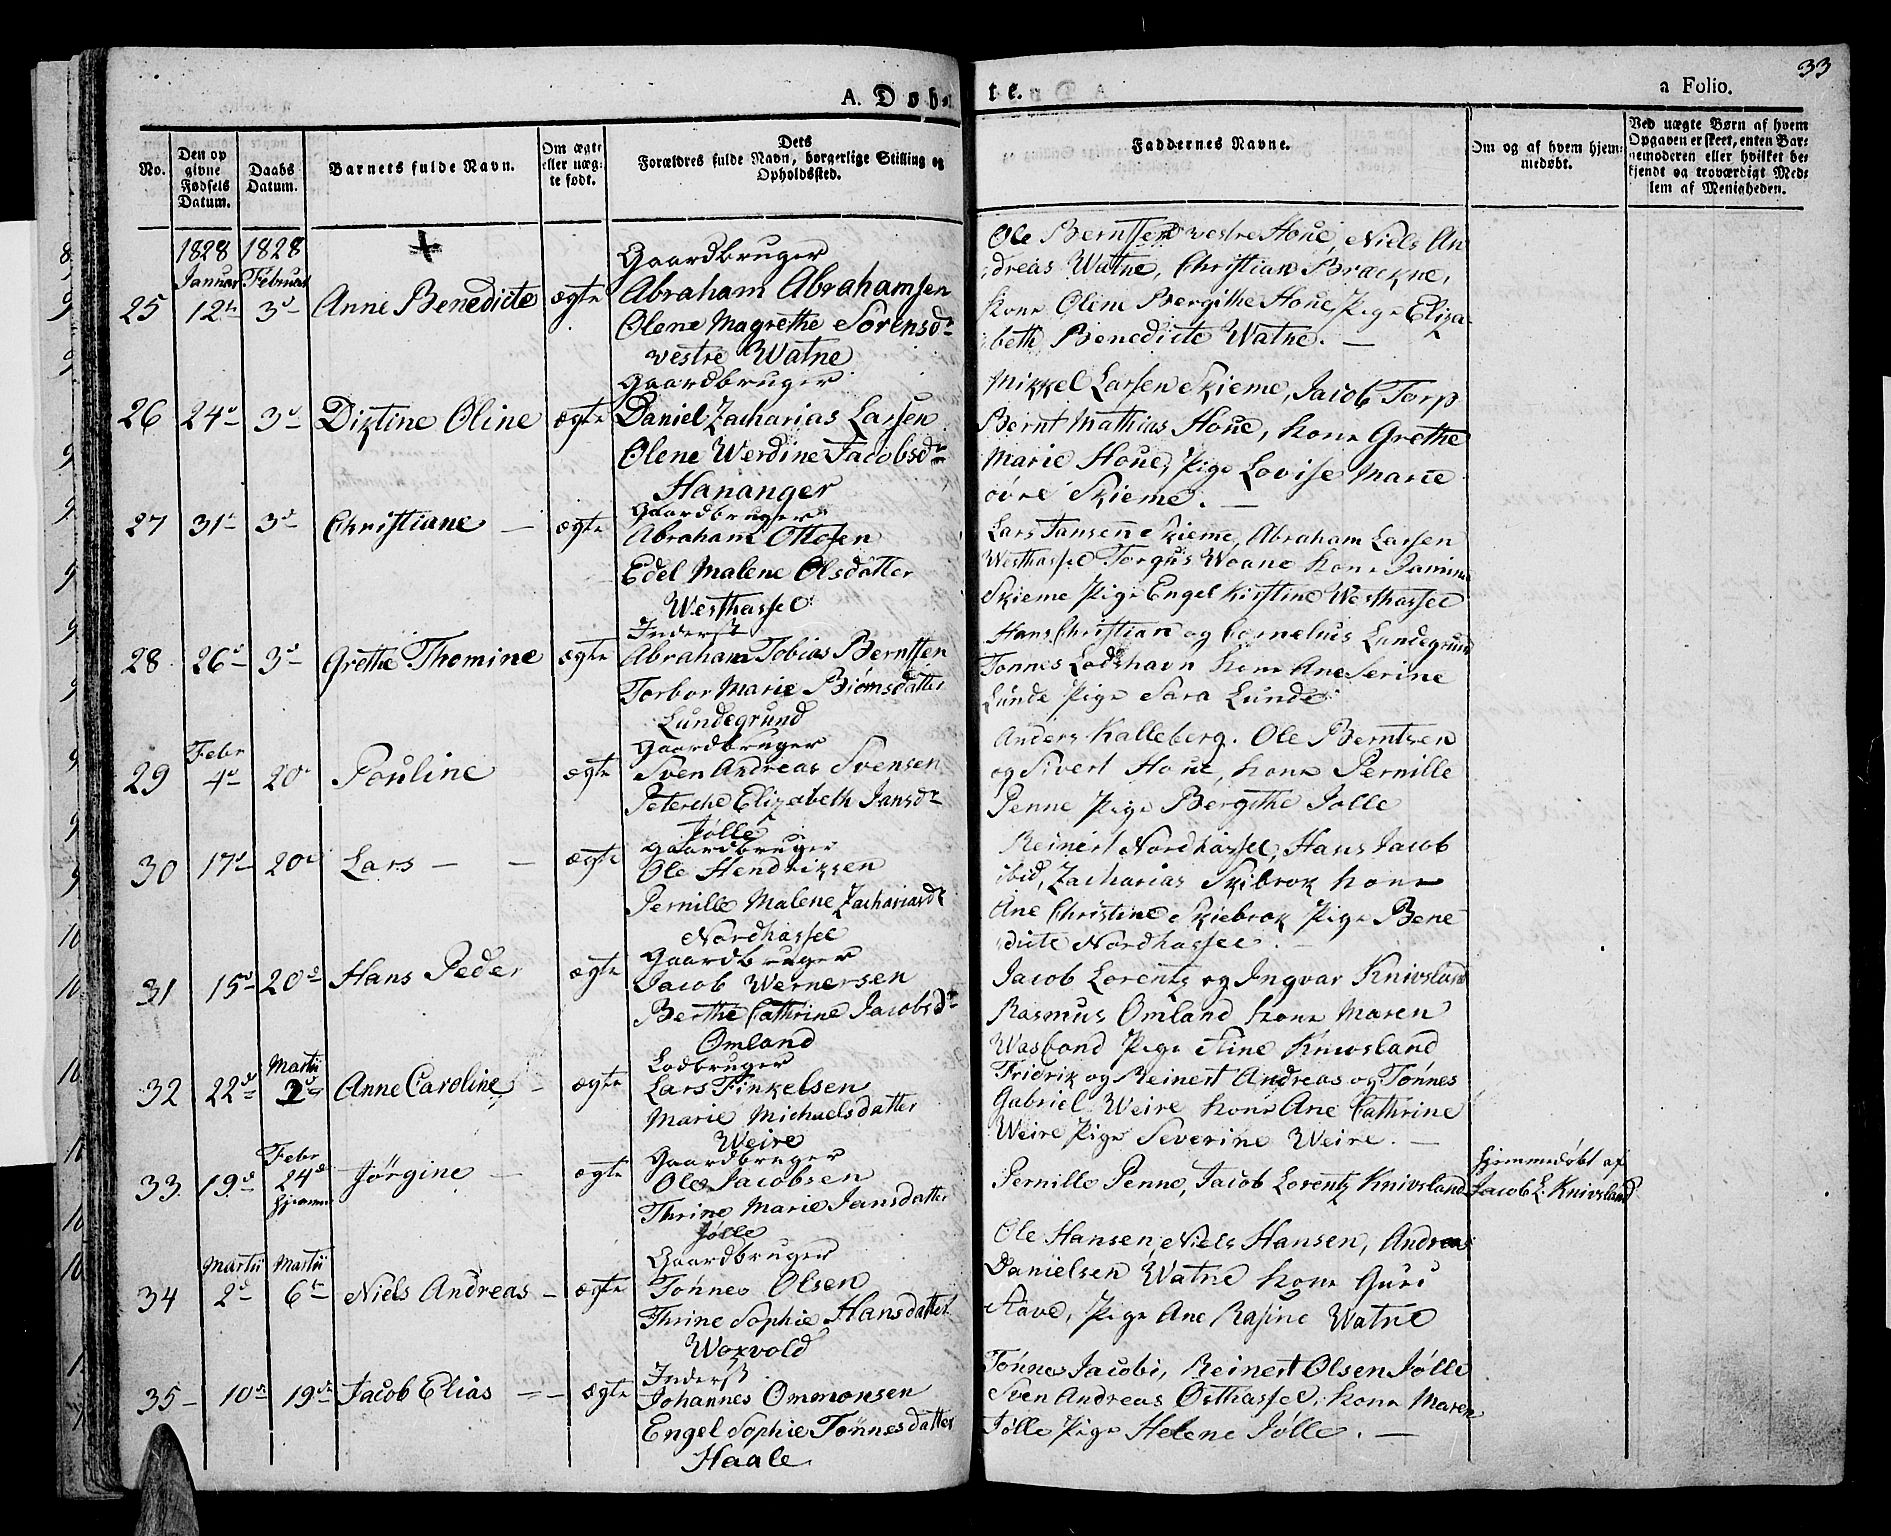 33
A. Døb-
te.
a Folio.
No.
Den op
givne
Fødsels
Datum.
Daabs
Datum.
Barnets fulde Navn.
Om ægte
eller uæg-
te født.
Dets
Forældres fulde Navn, borgerlige Stilling og
Opholdssted.
Faddernes Navne.
Om og af hvem hjem-
medøbt.
Ved uægte Børn af hvem
Opgaven er skeet, enten Bar-
nemoderen eller hvilket be-
kjendt og troværdigt Med-
lem af Menigheden.
1828 1828
Januar Februar
25 12te 3d Anne Benedicte ægte
Gaardbruger
Abraham Abrahamsen
Olene Magrethe Sörensdr
vestre Watne
Ole Berntsen vestre Houe, Niels An
dreas Watne, Christian Brækne,
Kone Olene Bergithe Houe Pige Eliza-
beth Benedicte Watne. —
26 24d 3d Diktine Oline ægte
Gaardbruger
Daniel Zacharias Larsen
Olene Werdine Jacobsdr
Hananger
Mikkel Larsen Skieme, Jacob Torp
Bernt Mathias Houe, Kone Grethe
Marie Houe, Pige Lovise Marie
övre Skieme. —
27 31te 3d Christiane — ægte
Gaardbruger
Abraham Ottosen
Edel Malene Olsdatter
Westhassel
Lars Jansen Skieme, Abraham Larsen
Westhassel Torgus Woane Kone Jamina
Skieme Pige Engel Kirstine Westhassel
28 26d 3d Grethe Thomine ægte
Inderst
Abraham Tobias Berntsen
Torbor Marie Biörnsdatter
Lundegrund
Hans Christian og Cornelius Lundegrund
Tonnes Lodshavn Kone Ane Serine
Lunde Pige Sara Lunde
Febr
29 4d 20d Pouline ægte
Gaardbruger
Sven Andreas Svensen
Peterche Elizabeth Jansdr
Jølle
Anders Kalleberg. Ole Berntsen
og Sivert Houe, Kone Pernille
Penne Pige Bergithe Jolle
30 17d 20d Lars — — ægte
Gaardbruger
Ole Hendriksen
Pernille Malene Zachariasdr
Nordhassel
Reinert Nordhassel, Hans Jacob
ibid, Zacharias Skibrok Kone
Ane Christine Skiebrok Pige Bene
dicte Nordhassel. —
31 15d 20d Hans Peder ægte
Gaardbruger
Jacob Wernersen
Berthe Cathrine Jacobsdr
Omland
Jacob Lorentz og Ingvar Knivsland
Rasmus Omland Kone Maren
Wasbond Pige Stine Knivsland
Martii
32 22d 2d Anne Caroline — ægte
Lodbruger
Lars Finkelsen
Marie Michaelsdatter
Weire
Fridrik og Reinert Andreas og Tønnes
Gabriel Weire Kone Ane Cathrine
Weire Pige Severine Weire. —
Febr
33 19d 24d
hjemme
Jörgine — ægte
Gaardbruger
Ole Jacobsen
Thrine Marie Jansdatter
Jølle
Pernille Penne, Jacob Lorentz Knivsland
hjemmedøbt af
Jacob L. Knivsland
Martii Martii
34 2d 6te Niels Andreas — ægte
Gaardbruger
Tönnes Olsen
Thrine Sophie Hansdatter
Woxvold
Ole Hansen, Niels Hansen, Andreas
Danielsen Watne Kone Guri
Stave, Pige Ane Rasine Watne
35 — 10de 19de Jacob Elias — — ægte
Inderst
Johannes Ommonsen
Engel Sophie Tönnesdatter
Haale
Tönnes Jacobi, Reinert Olsen Jølle
Sven Andreas Osthassel, Kone Maren
Jølle Pige Helene Jølle. —